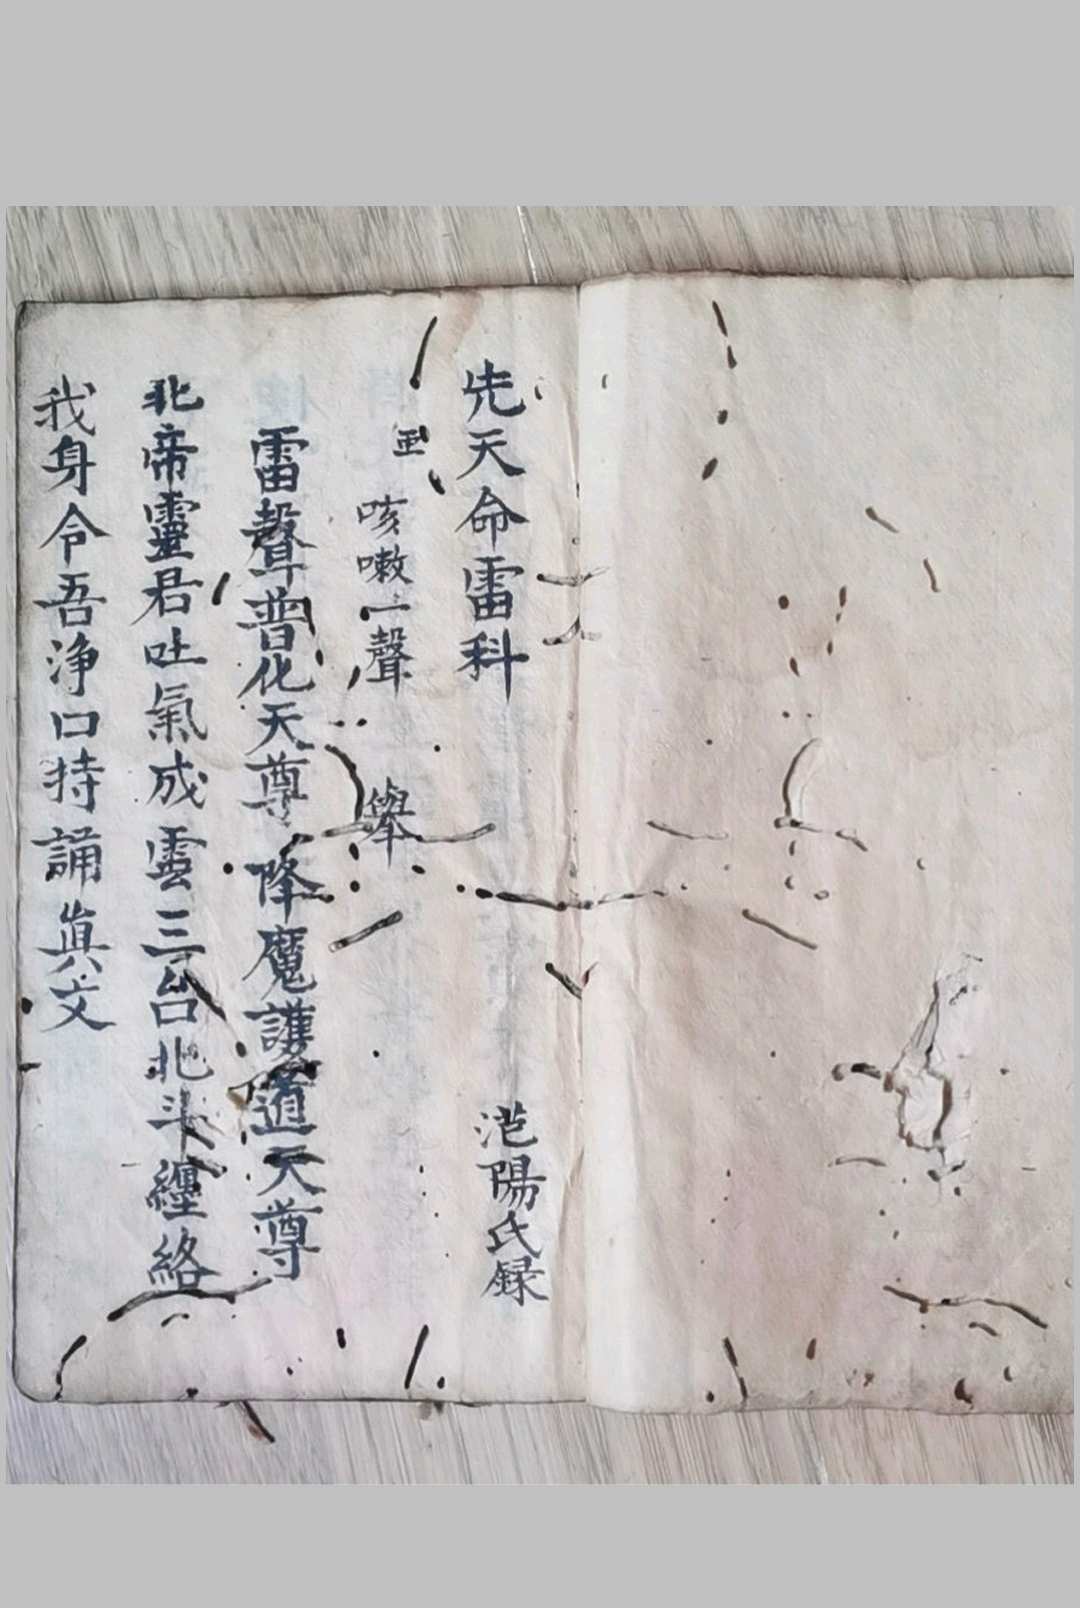 先天命雷科 滟陽氏録
咳嗽一聲 舉
雷聲普化天尊 降魔護道天尊
北帝靈君吐氣成雲三台北斗纏絡
我身令吾淨口持誦眞文